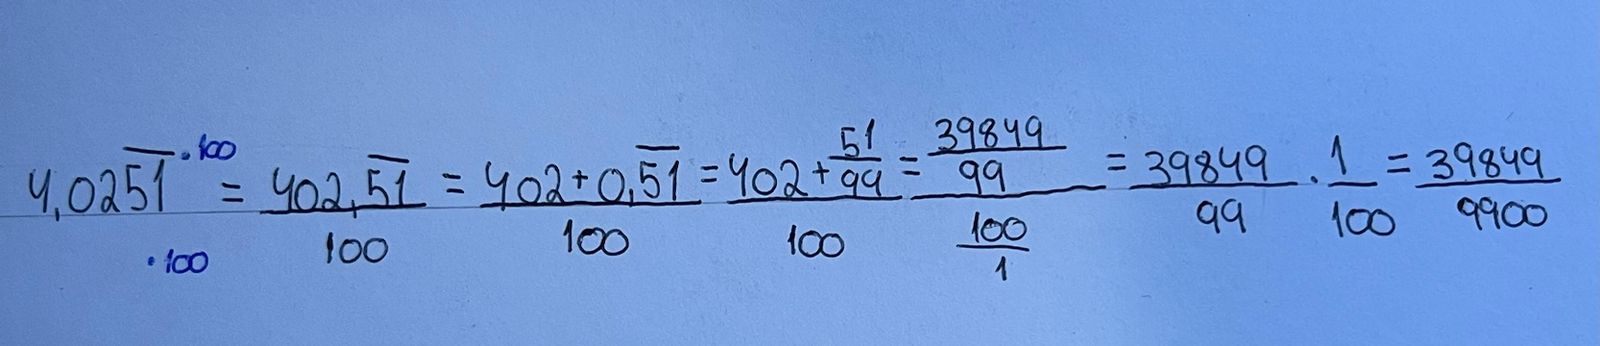 4,02\overline{51} \frac{·100}{·100} = \frac{402,\overline{51}}{100} = \frac{402+0,\overline{51}}{100} = \frac{402+\frac{51}{99}}{100} = \frac{\frac{39849}{99}}{\frac{100}{1}} = \frac{39849}{99} · \frac{1}{100} = \frac{39849}{9900}